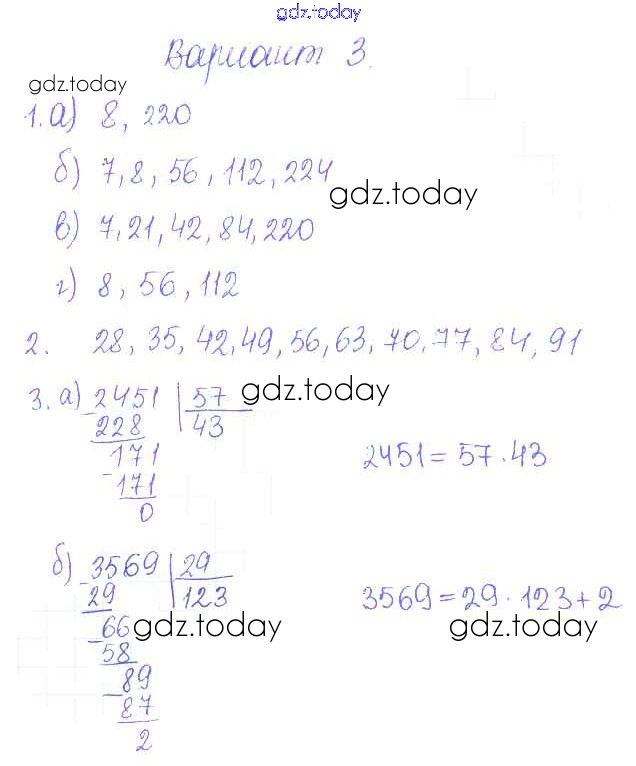 gdz.today
Вариант 3.
gdz.today
1. а) 8, 220
б) 7, 8, 56, 112, 224
gdz.today
в) 7, 21, 42, 84, 220
г) 8, 56, 112
2. 28, 35, 42, 49, 56, 63, 70, 77, 84, 91
3. а) 2451 | 57 gdz.today
- 228 43
171 2451 = 57 · 43
- 171
0
б) - 3569 | 29
29 123 3569 = 29 · 123 + 2
- 66 gdz.today gdz.today
58
- 89
87
2